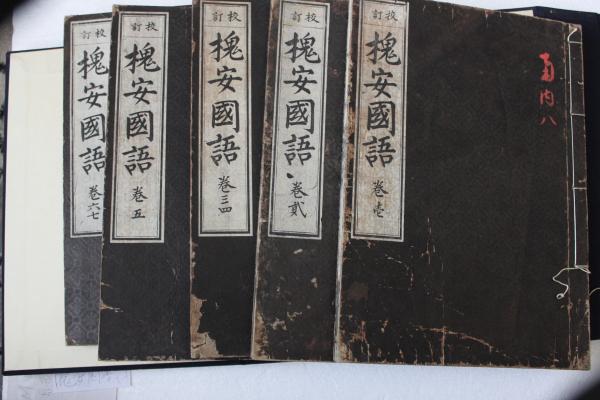 校訂
槐安國語
卷壱
校訂
槐安國語
卷貳
校訂
槐安國語
卷三四
校訂
槐安國語
卷五
校訂
槐安國語
卷六七
内八